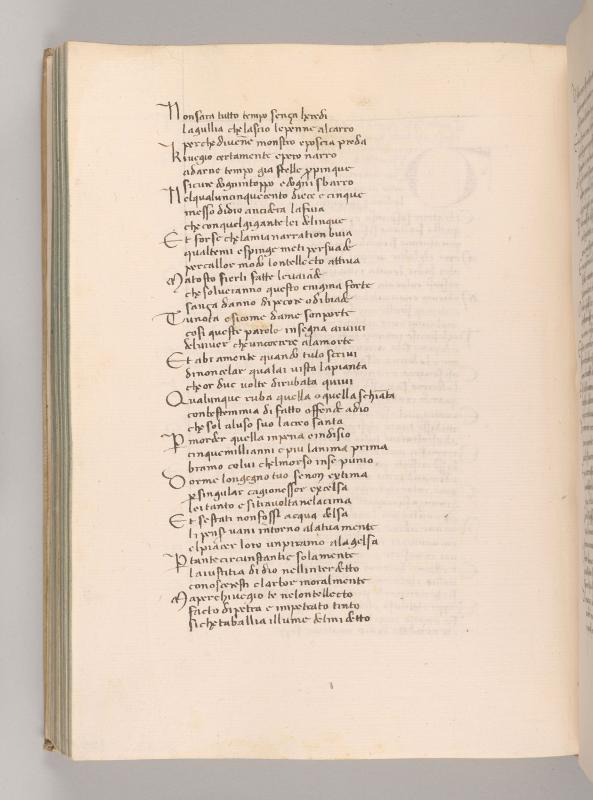 Non sara tutto tempo senza heredi
lagullia che lascio le penne al carro
perche divenne monstro e poscia preda
Kivegio certamente e pero narro
a darne tempo gia stelle ppinque
sicure dognintoppo e dogni sbarro
Nel qual un cinquecento diece e cinque
messo di dio ancidera la fuia
che con quel gigante lei delinque
Et forse che la mia narration buia
qual temi e spinge me ti persuade
per callor modo lontellecto attiva
Ma tosto fier li fatte le naiade
che solveranno questo enigma forte
sanza danno di pecore o di biade
Tu nota e sicome da me son porte
cosi queste parole insegna a vivi
del viver che un correre a la morte
Et abi a mente quando tu lo scrivi
di non celar qual ai vista la pianta
che or due volte dirubata quivi
Qualunque ruba quella o quella schianta
con bestemmia di fatto offende a dio
che sol a luso suo la creo santa
P morder quella in pena e in disio
cinquemilli anni e piu lanima prima
bramo colui chel morso in se punio
Dorme longegno tuo se non extima
p singular cagion esser excelsa
lei tanto e si travolta ne la cima
Et se stati non fossi acqua delsa
li pensi vani intorno a la tua mente
el piacer loro un piramo a la gelsa
P tante circunstantie solamente
la iustitia di dio nell interdetto
conosceresti e larbor moralmente
Ma perchi vegio te ne lontellecto
facto di petra e impetrato tinto
si che taballia illume del mi detto